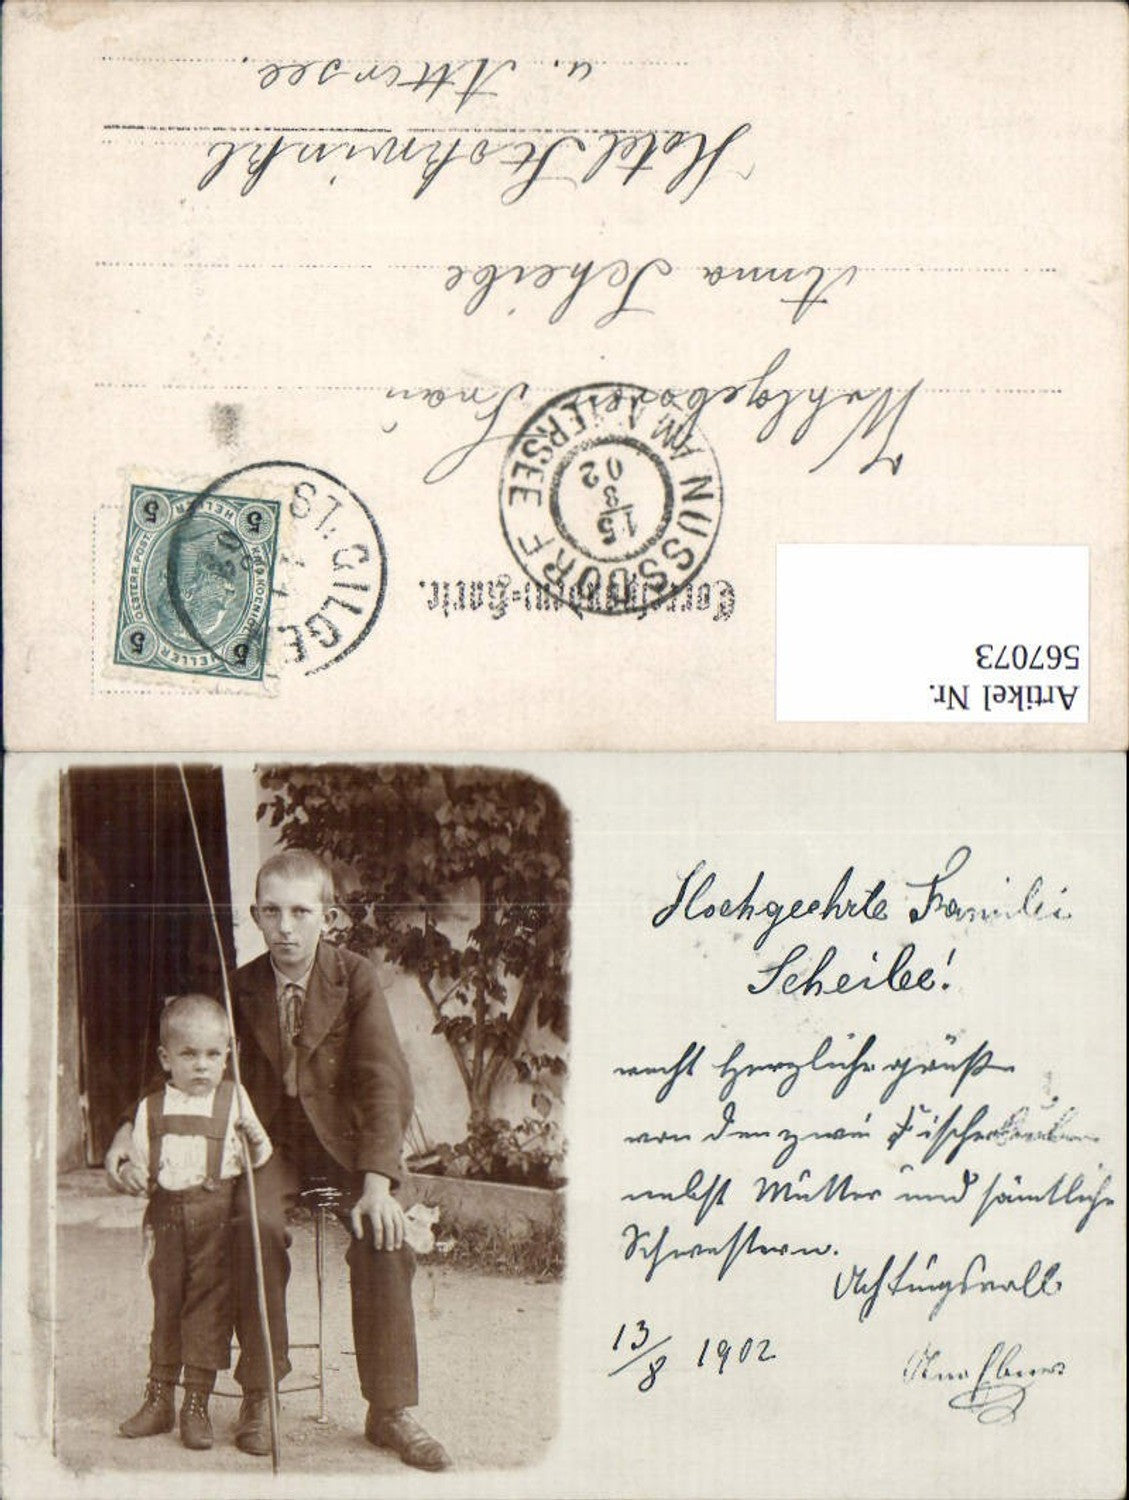 Artikel Nr.
567073
Correspondenz-Karte.
5 HELLER 5
KAIS. KOENIGL. OESTERR. POST.
5 HELLER 5
ST. GILGEN
NUSSDORF
AM ATTERSEE
15 8
02
Wohlgeboren Frau
Anna Scheibe
Hotel Stokwinkl
a. Attersee.
Hochgeehrte Familie
Scheibe!
recht herzliche grüße
von den zwei Fischerbuben
nebst Mutter und sämtliche
Schwestern.
Achtungsvoll
13/8 1902
Ebner